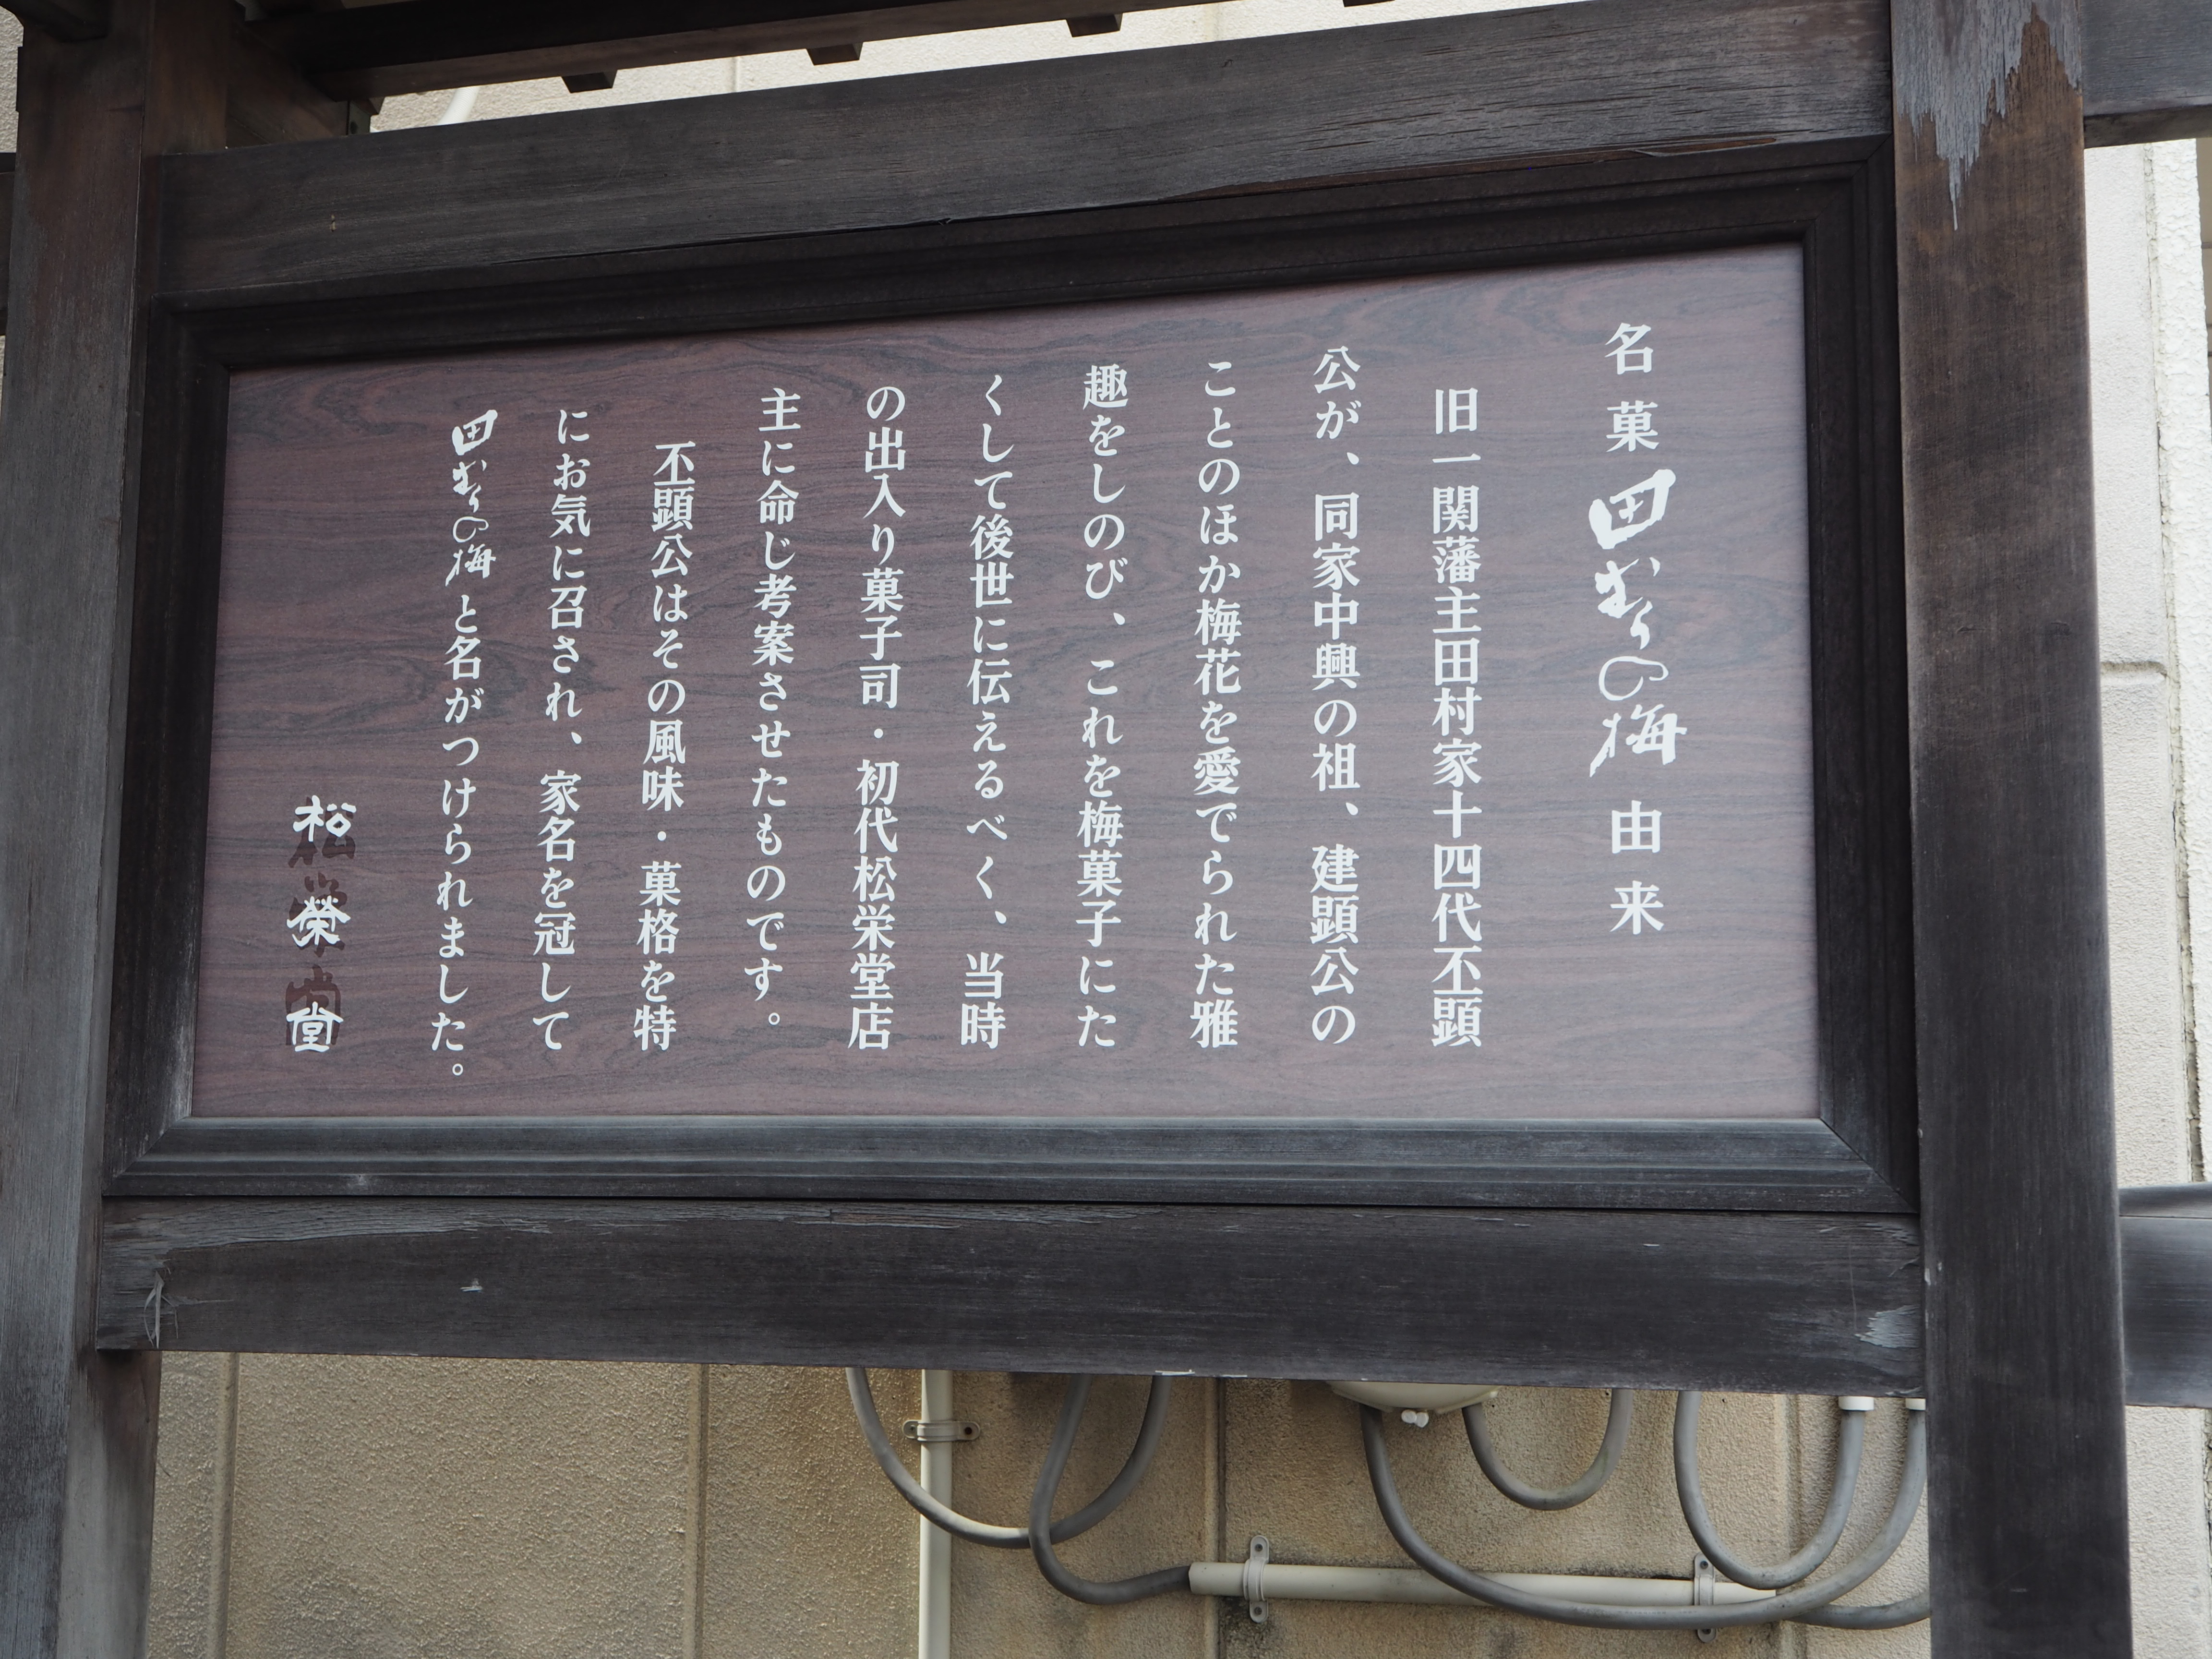 名菓田むらの梅由来
旧一関藩主田村家十四代丕顕
公が、同家中興の祖、建顕公の
ことのほか梅花を愛でられた雅
趣をしのび、これを梅菓子にた
くして後世に伝えるべく、当時
の出入り菓子司・初代松栄堂店
主に命じ考案させたものです。
丕顕公はその風味・菓格を特
にお気に召され、家名を冠して
田むらの梅と名がつけられました。
松榮堂